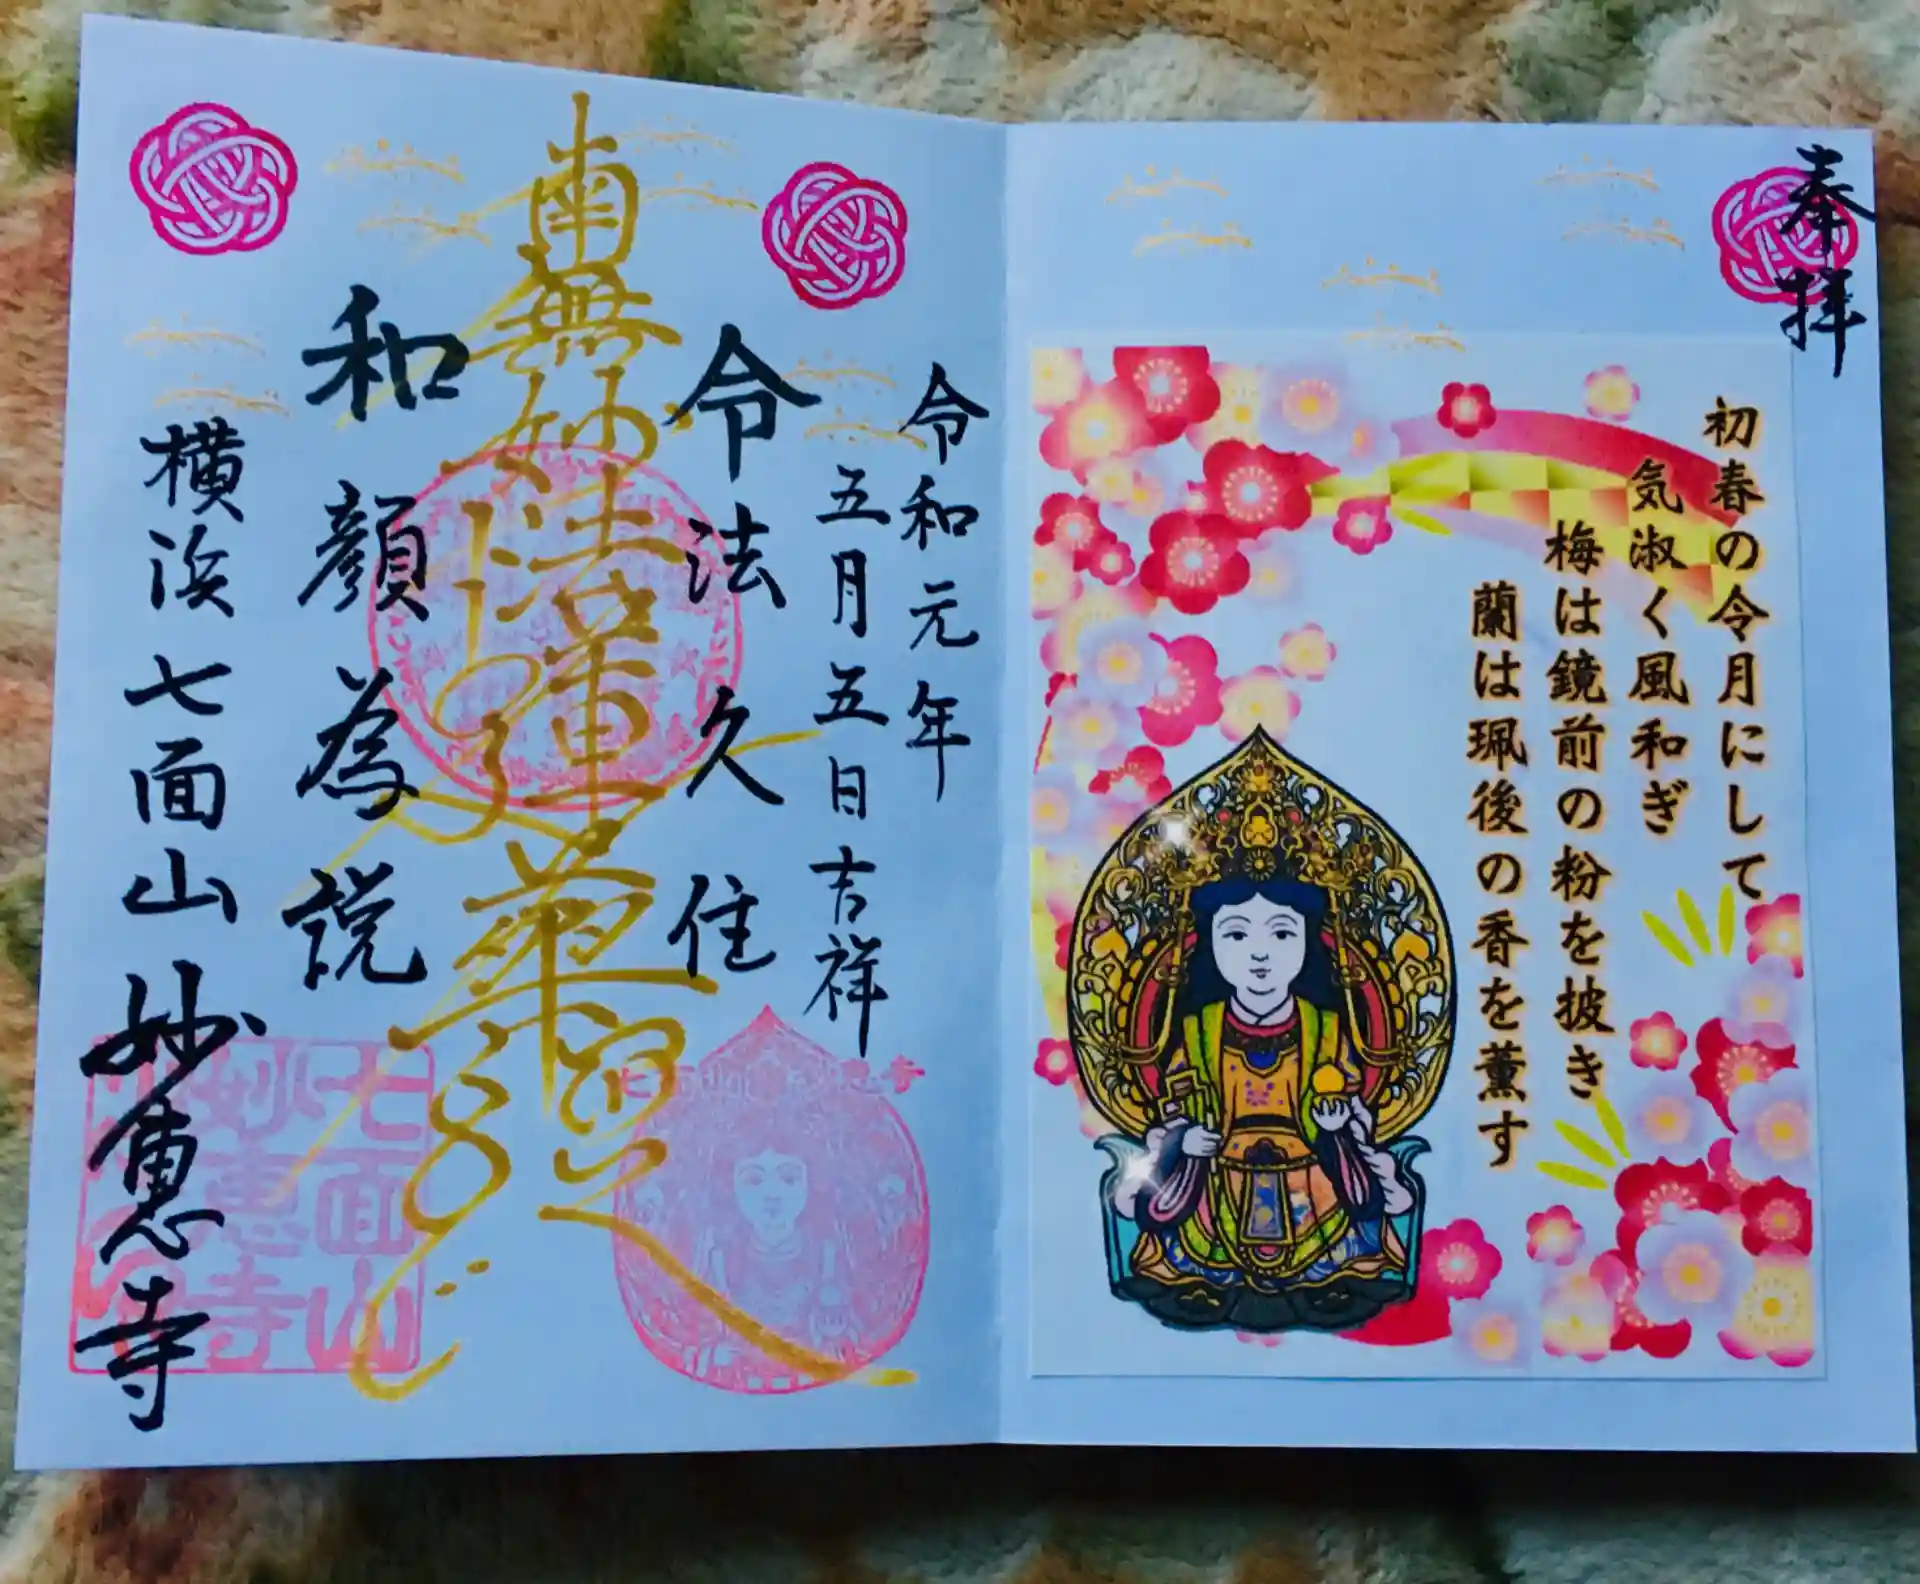 奉拝
初春の令月にして
気淑く風和ぎ
梅は鏡前の粉を披き
蘭は珮後の香を薫す
令和元年
五月五日吉祥
令法久住
南無妙法蓮華経
和顔為説
横浜七面山妙恵寺
七面山
妙恵寺